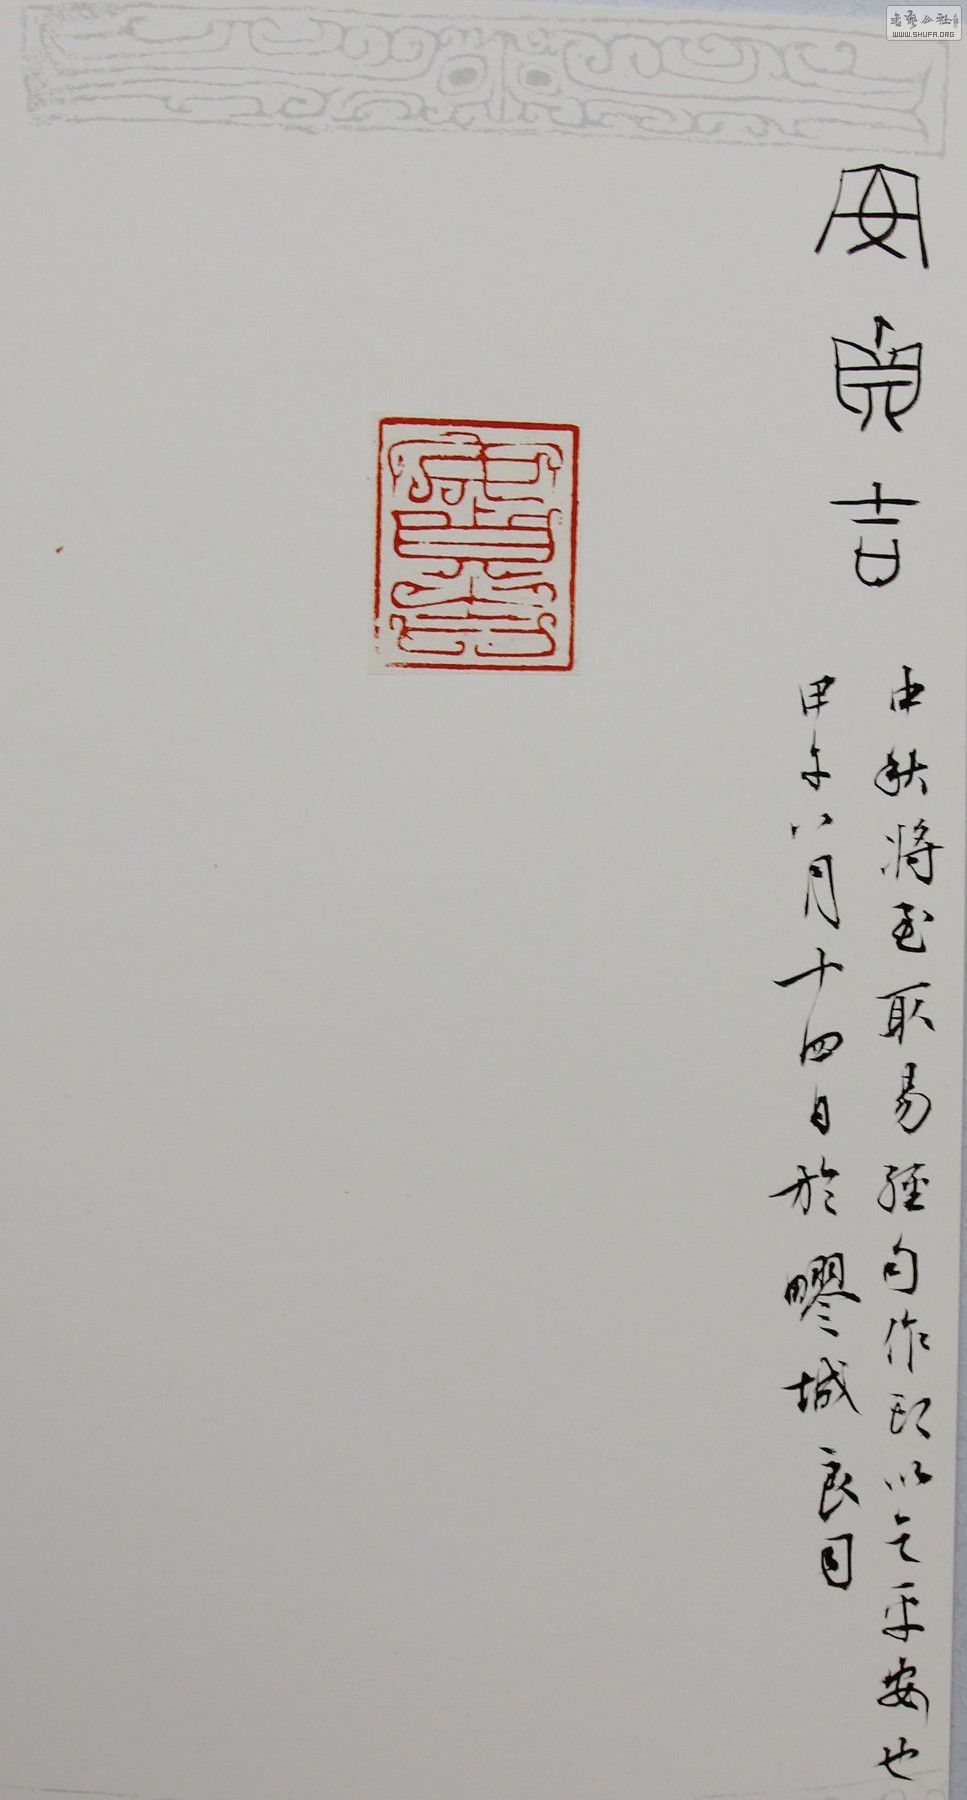 安貞吉
中秋將至取易經句作印以乞平安也
甲午八月十四日於疁城良目
書法公社
WWW.SHUFA.ORG